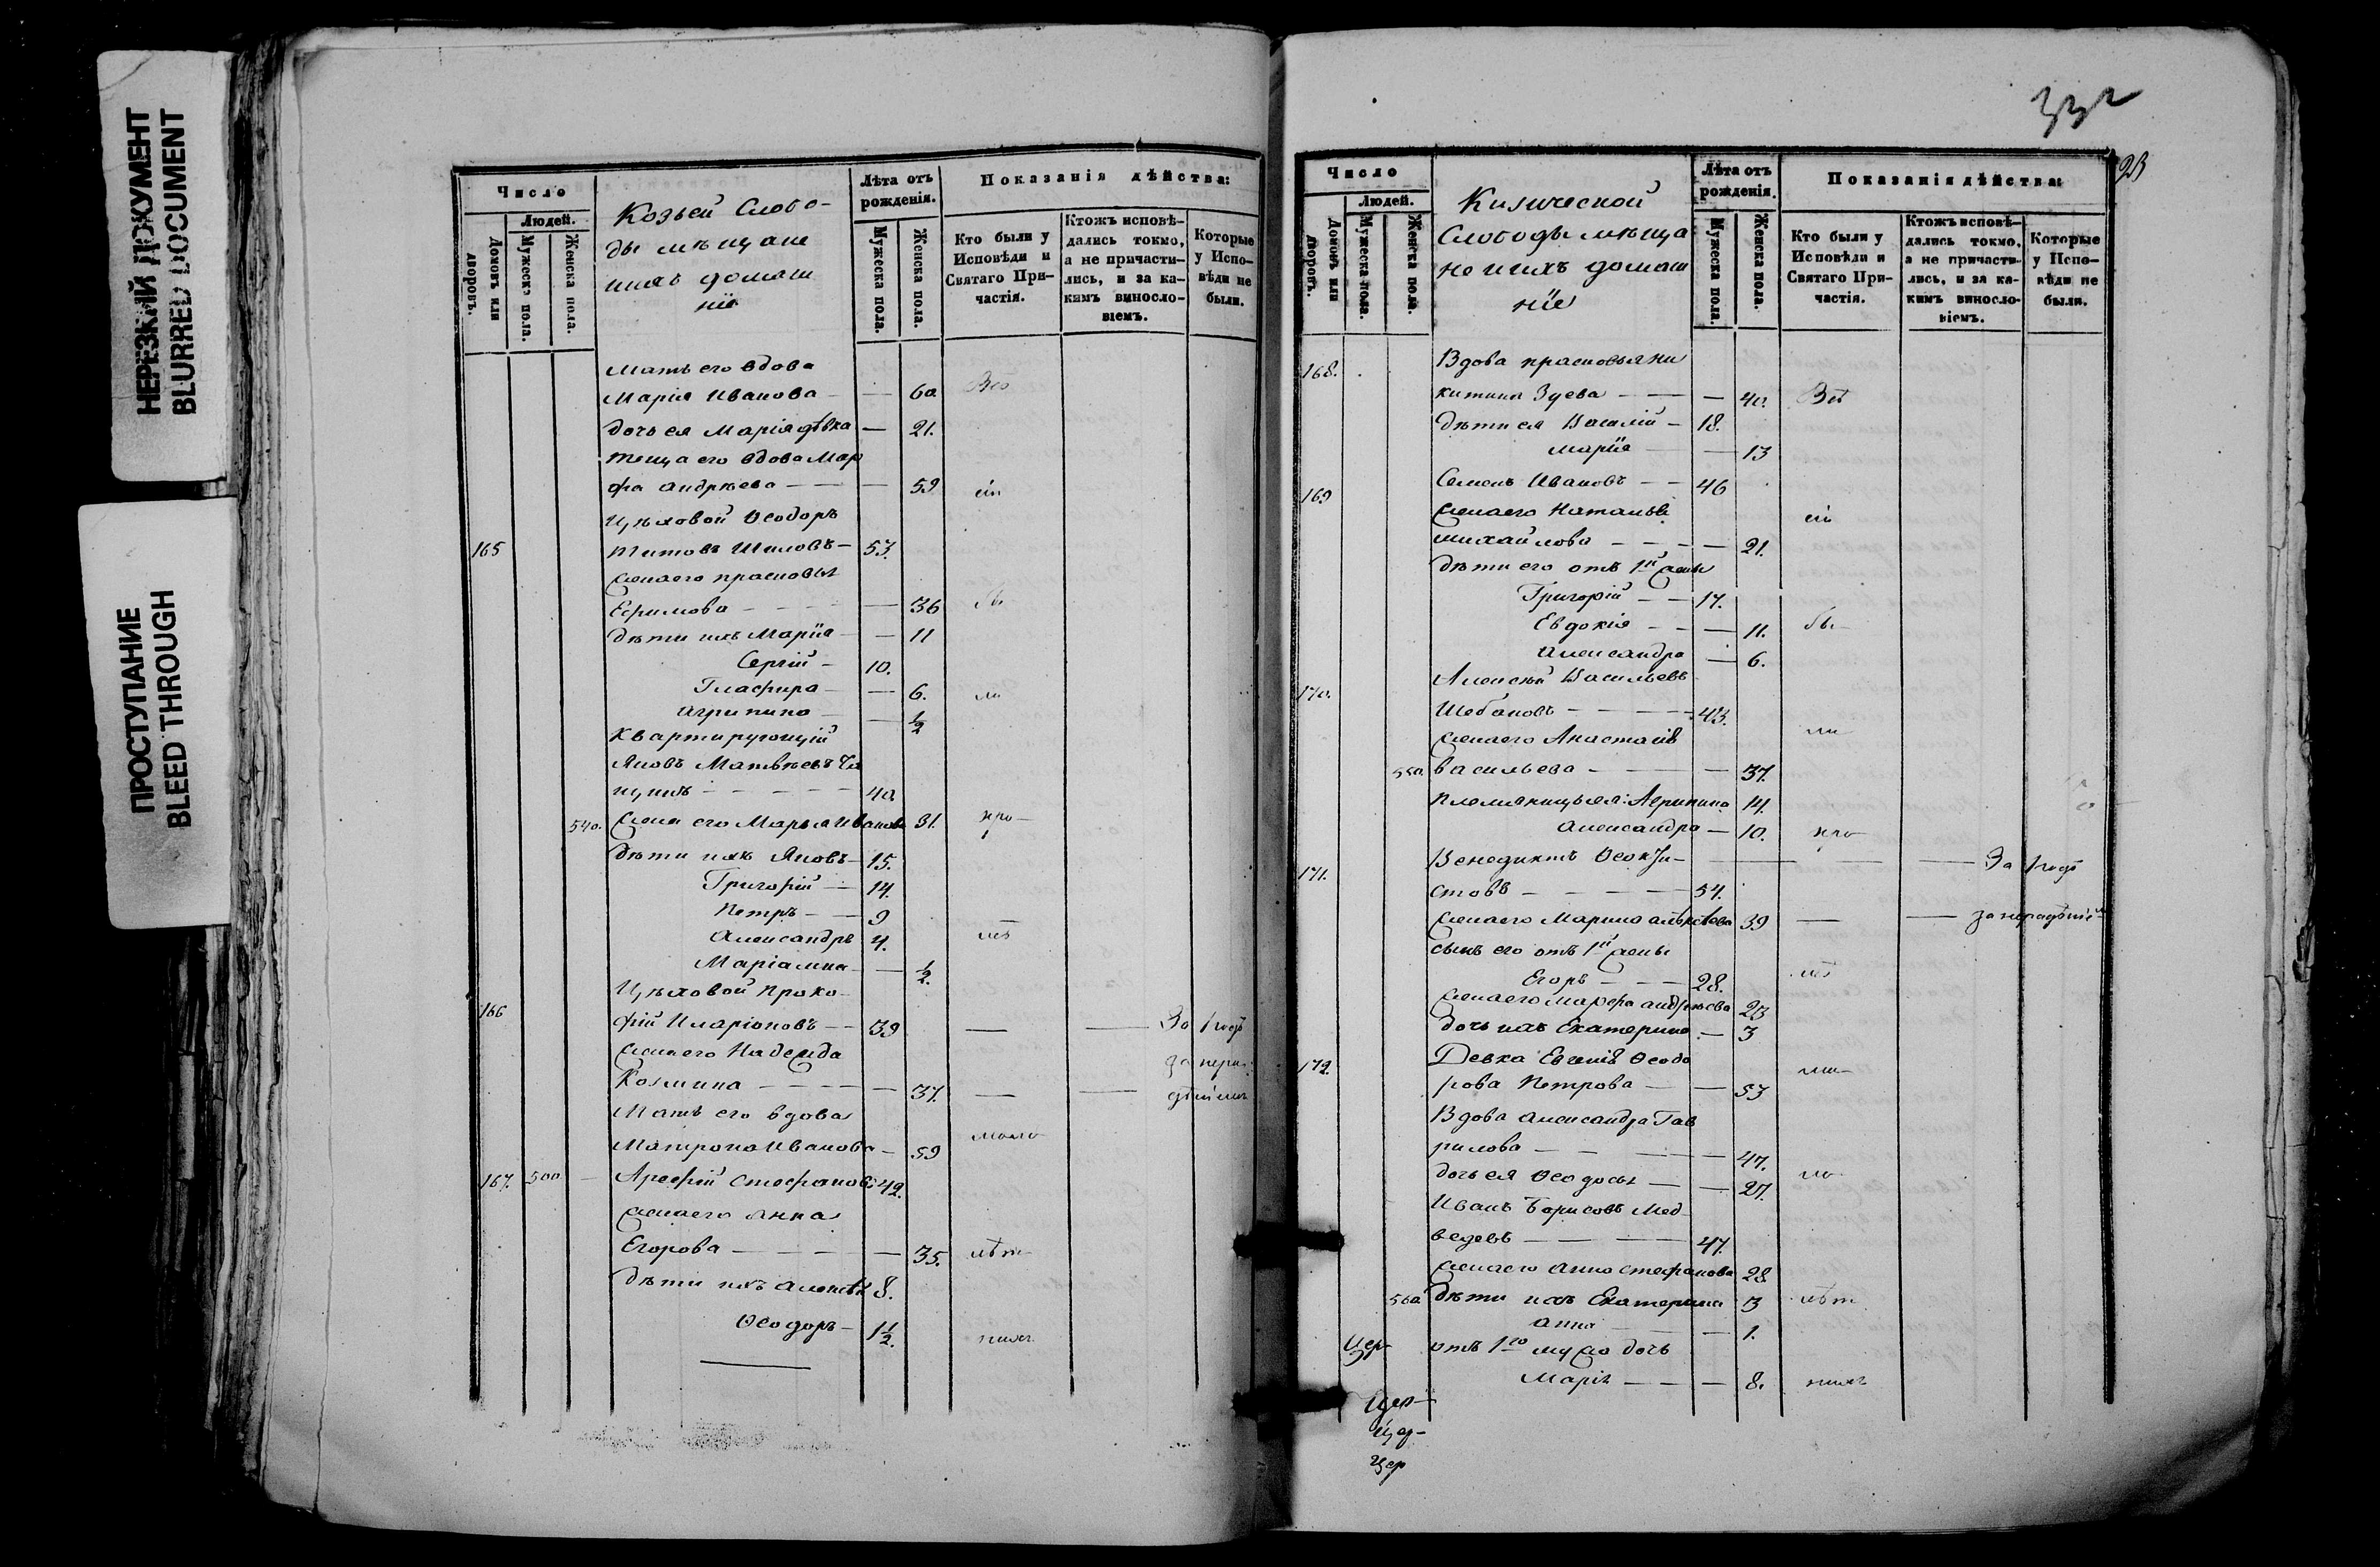 НЕРЕЗКИЙ ДОКУМЕНТ
BLURRED DOCUMENT
ПРОСТУПАНИЕ
BLEED THROUGH
Число
Людей.
Домовъ или дворовъ.
Мужеска пола.
Женска пола.
Козьей Слобо-
ды мещане
ихъ домаш
ніе
Лѣта отъ рожденія.
Мужеска пола.
Женска пола.
Показанія дѣйства:
Кто были у Исповѣди и Святаго Причастія.
Ктожъ исповѣдались токмо, а не причастились, и за какимъ винословіемъ.
Которые у Исповѣди не были.
Мать его вдова
Марія Иванова — — 60
дочь ея Марія дѣвка — 21.
теща его вдова Мар
фа Андрѣева — — — 59
Цѣховой Ѳеодоръ
165 Титовъ Шиловъ — 53.
Жена его Прасковья
Ефимова — — — 36
дѣти ихъ Марія — — 11
Сергій — 10.
Гласфира — — 6.
Агрипина — — ½
Квартирующій
Яковъ Матвѣевъ
— — — 40
540. Жена его Марья Иванова 31. про-
дѣти ихъ Яковъ — 15.
Григорій — 14.
Петръ — — 9
Александръ 4.
Маріамна — — ½.
Цѣховой Проко-
166 фій Иларіоновъ — — 39 — — За 1 годъ
Жена его Надежда
Козмина — — — — 37. — —
Мать его вдова
Матрона Иванова — 59
167. 500 — Арефій Стефановъ 42.
Жена его Анна
Егорова — — — — 35.
дѣти ихъ Алексѣй 8.
Ѳеодоръ — 1½.
332
23
Число
Людей.
Домовъ или дворовъ.
Мужеска пола.
Женска пола.
Кизической
Слободы меща
не и ихъ домаш
ніе
Лѣта отъ рожденія.
Мужеска пола.
Женска пола.
Показанія дѣйства:
Кто были у Исповѣди и Святаго Причастія.
Ктожъ исповѣдались токмо, а не причастились, и за какимъ винословіемъ.
Которые у Исповѣди не были.
168. Вдова Прасковья Ни
китина Зуева — — — 40.
дѣти ея Василій — 18.
Марія — — 13
169 Семенъ Ивановъ — — 46
Жена его Наталья
Михайлова — — — — 21.
дѣти его отъ 1й жены
Григорій — — 17.
Евдокія — — — 11. бы-
Александра — 6.
170. Алексѣй Васильевъ
Шебановъ — — — 43.
Жена его Анастасія
550. Васильева — — — 37. ли
племянницы ея: Агрипина 14.
Александра — 10. про
171. Венедиктъ Ѳеокти- — — — За 1 годъ
стовъ — — — — 54.
Жена его Марина Алексѣева 39 — — за нерадѣніе
сынъ его отъ 1й жены
Егоръ — — — 28.
Жена его Марфа Андрѣева 23
дочь ихъ Екатерина — 3
172. Девка Евгенія Ѳеодо
рова Петрова — — 53
Вдова Александра Гав
рилова — — — — 47.
дочь ея Ѳеодосья — — 27.
Иванъ Борисовъ Мед-
ведевъ — — — 47.
Жена его Анна Стефанова 28
560 дѣти ихъ Екатерина 3
Анна — — — 1.
Цер- отъ 1го мужа дочь
Марія — — — 8.
Цер-
Цер-
Цер